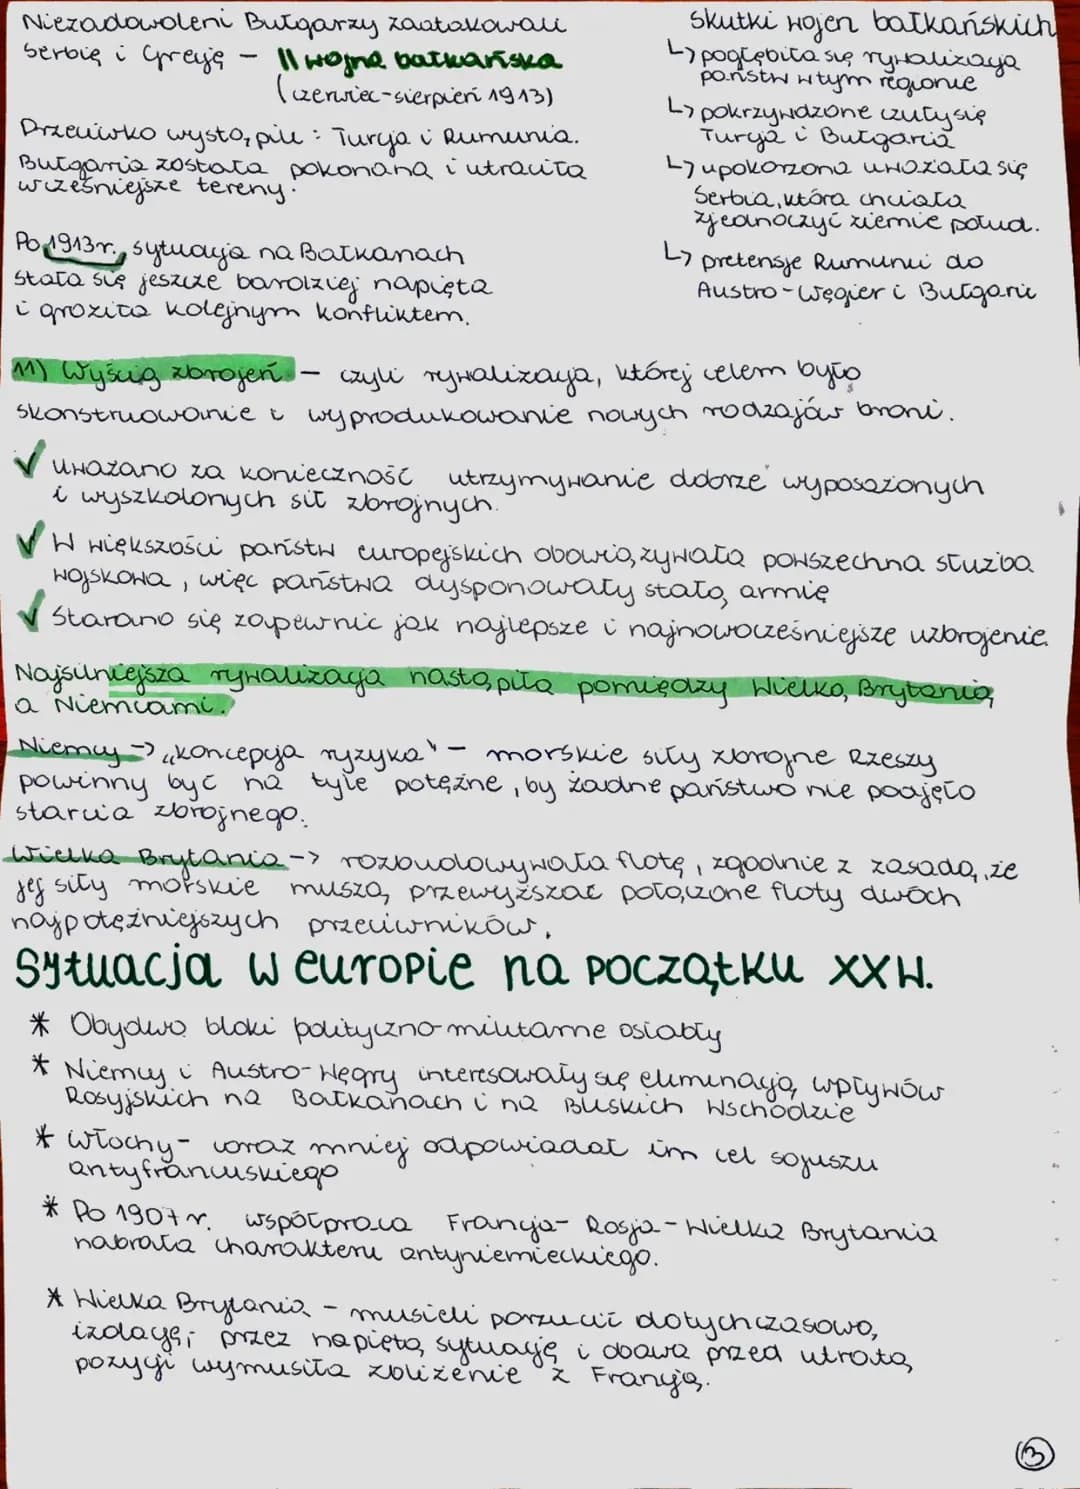 Niezadowoleni Bułgarzy zaatakowali
Serbię i Grecję - II wojna bałkańska
(czerwiec-sierpień 1913)
Przeciwko wystąpili: Turcja i Rumunia.
Bułgaria została pokonana i utraciła
wcześniejsze tereny.
Po 1913r. sytuacja na Bałkanach
stała się jeszcze bardziej napięta
i groziła kolejnym konfliktem.
Skutki wojen bałkańskich
↳ pogłębiła się rywalizacja
państw w tym regionie
↳ pokrzywdzone czuły się
Turcja i Bułgaria
↳ upokorzona uważała się
Serbia, która chciała
zjednoczyć ziemie połud.
↳ pretensje Rumunii do
Austro-Węgier i Bułgarii
11) Wyścig zbrojeń - czyli rywalizacja, której celem było
skonstruowanie i wyprodukowanie nowych rodzajów broni.
✓ uważano za konieczność utrzymywanie dobrze wyposażonych
i wyszkolonych sił zbrojnych.
✓ W większości państw europejskich obowiązywała powszechna służba
wojskowa, więc państwa dysponowały stałą armię
✓ Starano się zapewnić jak najlepsze i najnowocześniejsze uzbrojenie.
Najsilniejsza rywalizacja nastąpiła pomiędzy Wielką Brytanią
a Niemcami.
Niemcy -> „koncepcja ryzyka" - morskie siły zbrojne Rzeszy
powinny być na tyle potężne, by żadne państwo nie podjęło
starcia zbrojnego.
Wielka Brytania -> rozbudowywała flotę, zgodnie z zasadą, że
jej siły morskie muszą przewyższać połączone floty dwóch
najpotężniejszych przeciwników.
Sytuacja w europie na początku XXw.
* Obydwa bloki polityczno-militarne osłabły
* Niemcy i Austro-Węgry interesowały się eliminacją wpływów
Rosyjskich na Bałkanach i na Bliskich Wschodzie
* Włochy - coraz mniej odpowiadał im cel sojuszu
antyfrancuskiego
* Po 1907r. współpraca Francja-Rosja-Wielka Brytania
nabrała charakteru antyniemieckiego.
* Wielka Brytania - musieli porzucić dotychczasową
izolację, przez napiętą sytuację i obawa przed utratą
pozycji wymusiła zbliżenie z Francją.
3